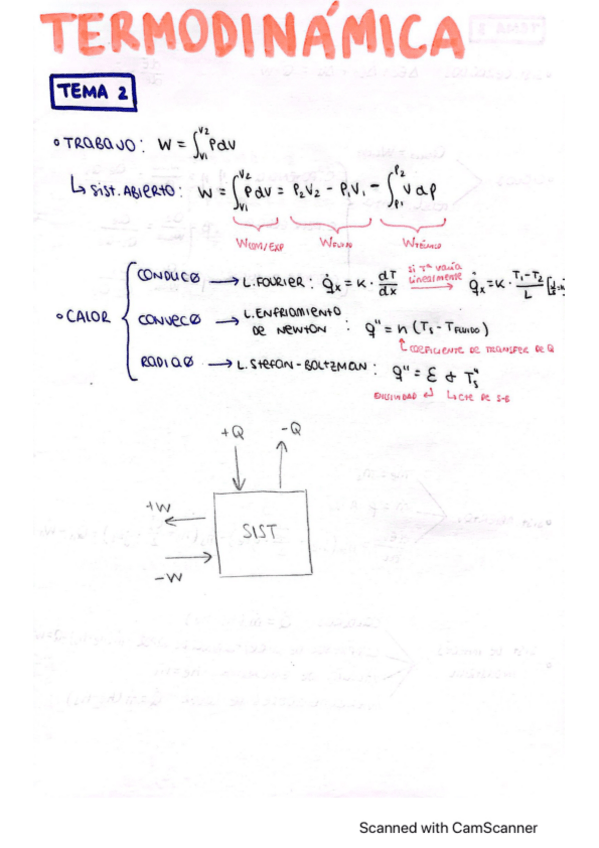 TERMODINÁMICA
TEMA 2
∘ TRABAJO: W = ∫_{V1}^{V2} Pdv
↳ SIST. ABIERTO: W = ∫_{V1}^{V2} P dv = P₂V₂ − P₁V₁ − ∫_{P1}^{P2} v dp
W COM/EXP W FLUJO W TÉCNICO
∘ CALOR
CONDUCØ → L. FOURIER: q̇x = K · dT/dx si Tª varía linealmente → q̇x = K · T₁−T₂/L
CONVECØ → L. ENFRIAMIENTO DE NEWTON: q'' = h (Ts − TFLUIDO)
COEFICIENTE DE TRANSFER DE Q
RADIAØ → L. STEFAN-BOLTZMAN: q'' = ε σ Ts⁴
EMISIVIDAD CTE DE S-B
+Q −Q
+W
SIST
−W
Scanned with CamScanner